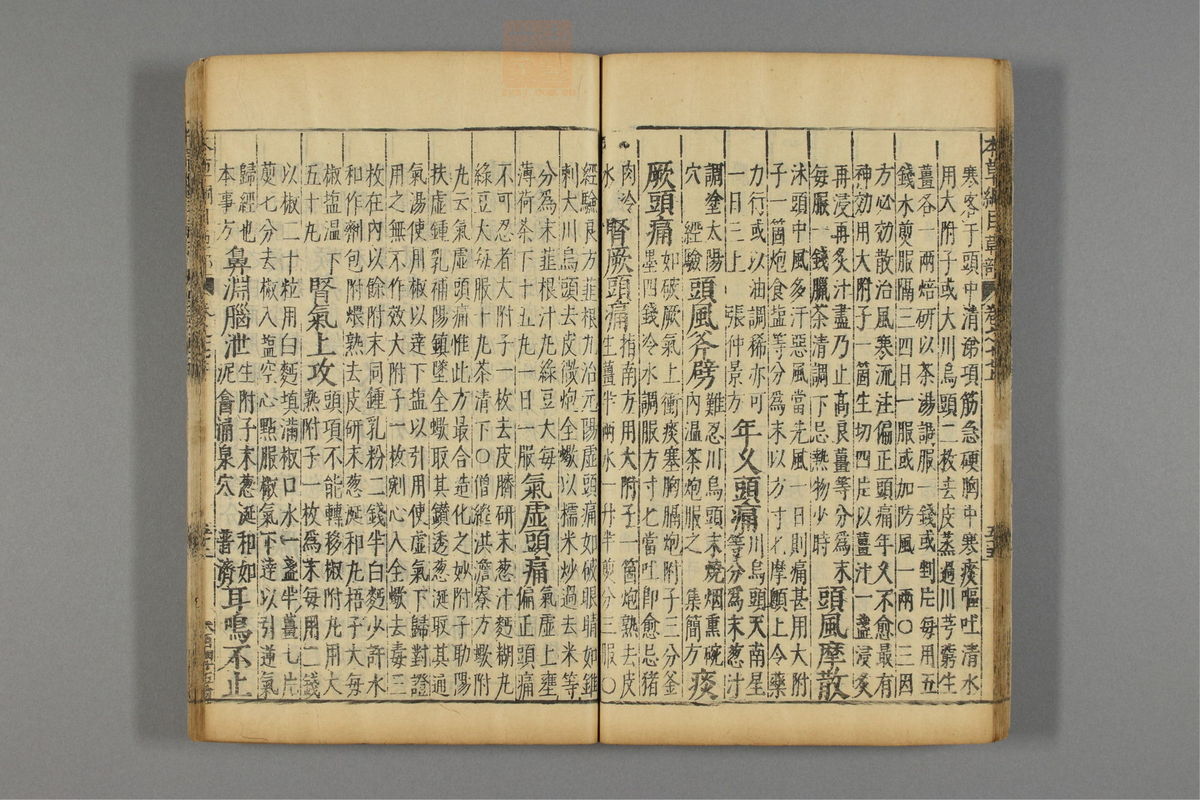 本草綱目草部
寒客于頭中清涕項筋急硬胸中寒痰嘔吐清水
用大附子或大川烏頭二枚去皮蒸過川芎藭生
薑各一兩焙研以茶湯調服一錢或剉片每用五
錢水煎服隔三四日一服或加防風一兩〇三因
方必効散治風寒流注偏正頭痛年久不愈最有
神効用大附子一箇生切四片以薑汁一盞浸炙
再浸再炙汁盡乃止高良薑等分為末
每服一錢臘茶清調下忌熱物少時 頭風摩散
沐頭中風多汗惡風當先風一日則痛甚用大附
子一箇炮食塩等分為末以方寸匕摩顖上令藥
力行或以油調稀亦可
一日三上 張仲景方 年久頭痛 川烏頭天南星
等分為末葱汁
調塗太陽
穴 經驗 頭風斧劈 難忍川烏頭末燒烟熏碗
內溫茶炮服之 集簡方 痰
厥頭痛 如破厥氣上衝痰塞胸膈炮附子三分釜
墨四錢冷水調服方寸匕當吐即愈忌猪
肉冷
水 腎厥頭痛 指南方用大附子一箇炮熟去皮
生薑半兩水一升半煎分三服〇
經驗良方韮根丸治元陽虛頭痛如破眼睛如錐
刺大川烏頭去皮微炮全蠍以糯米炒過去米等
分為末韮根汁丸綠豆大每
薄荷茶下十五丸一日一服 氣虛頭痛 氣虛上壅
偏正頭痛
不可忍者大附子一枚去皮臍研末葱汁麪糊丸
綠豆大每服十丸茶清下〇僧繼洪澹寮方蠍附
丸云氣虛頭痛惟此方最合造化之妙附子助陽
扶虛鍾乳補陽鎮墜全蠍取其鑽透葱涎取其通
氣湯使用椒以達下塩以引用使虛氣下歸對證
用之無不作效大附子一枚剜心入全蠍去毒三
枚在內以餘附末同鍾乳粉二錢半白麪少許水
和作劑包附煨熟去皮研末葱涎和丸梧子大每
椒塩溫下
五十丸 腎氣上攻 頭項不能轉移椒附丸用大
熟附子一枚為末每用二錢
以椒二十粒用白麪填滿椒口水一盞半薑七片
煎七分去椒入塩空心點服椒氣下達以引逆氣
歸經也
本事方 鼻淵腦泄 生附子末葱涎和如
泥罯涌泉穴 普濟 耳鳴不止